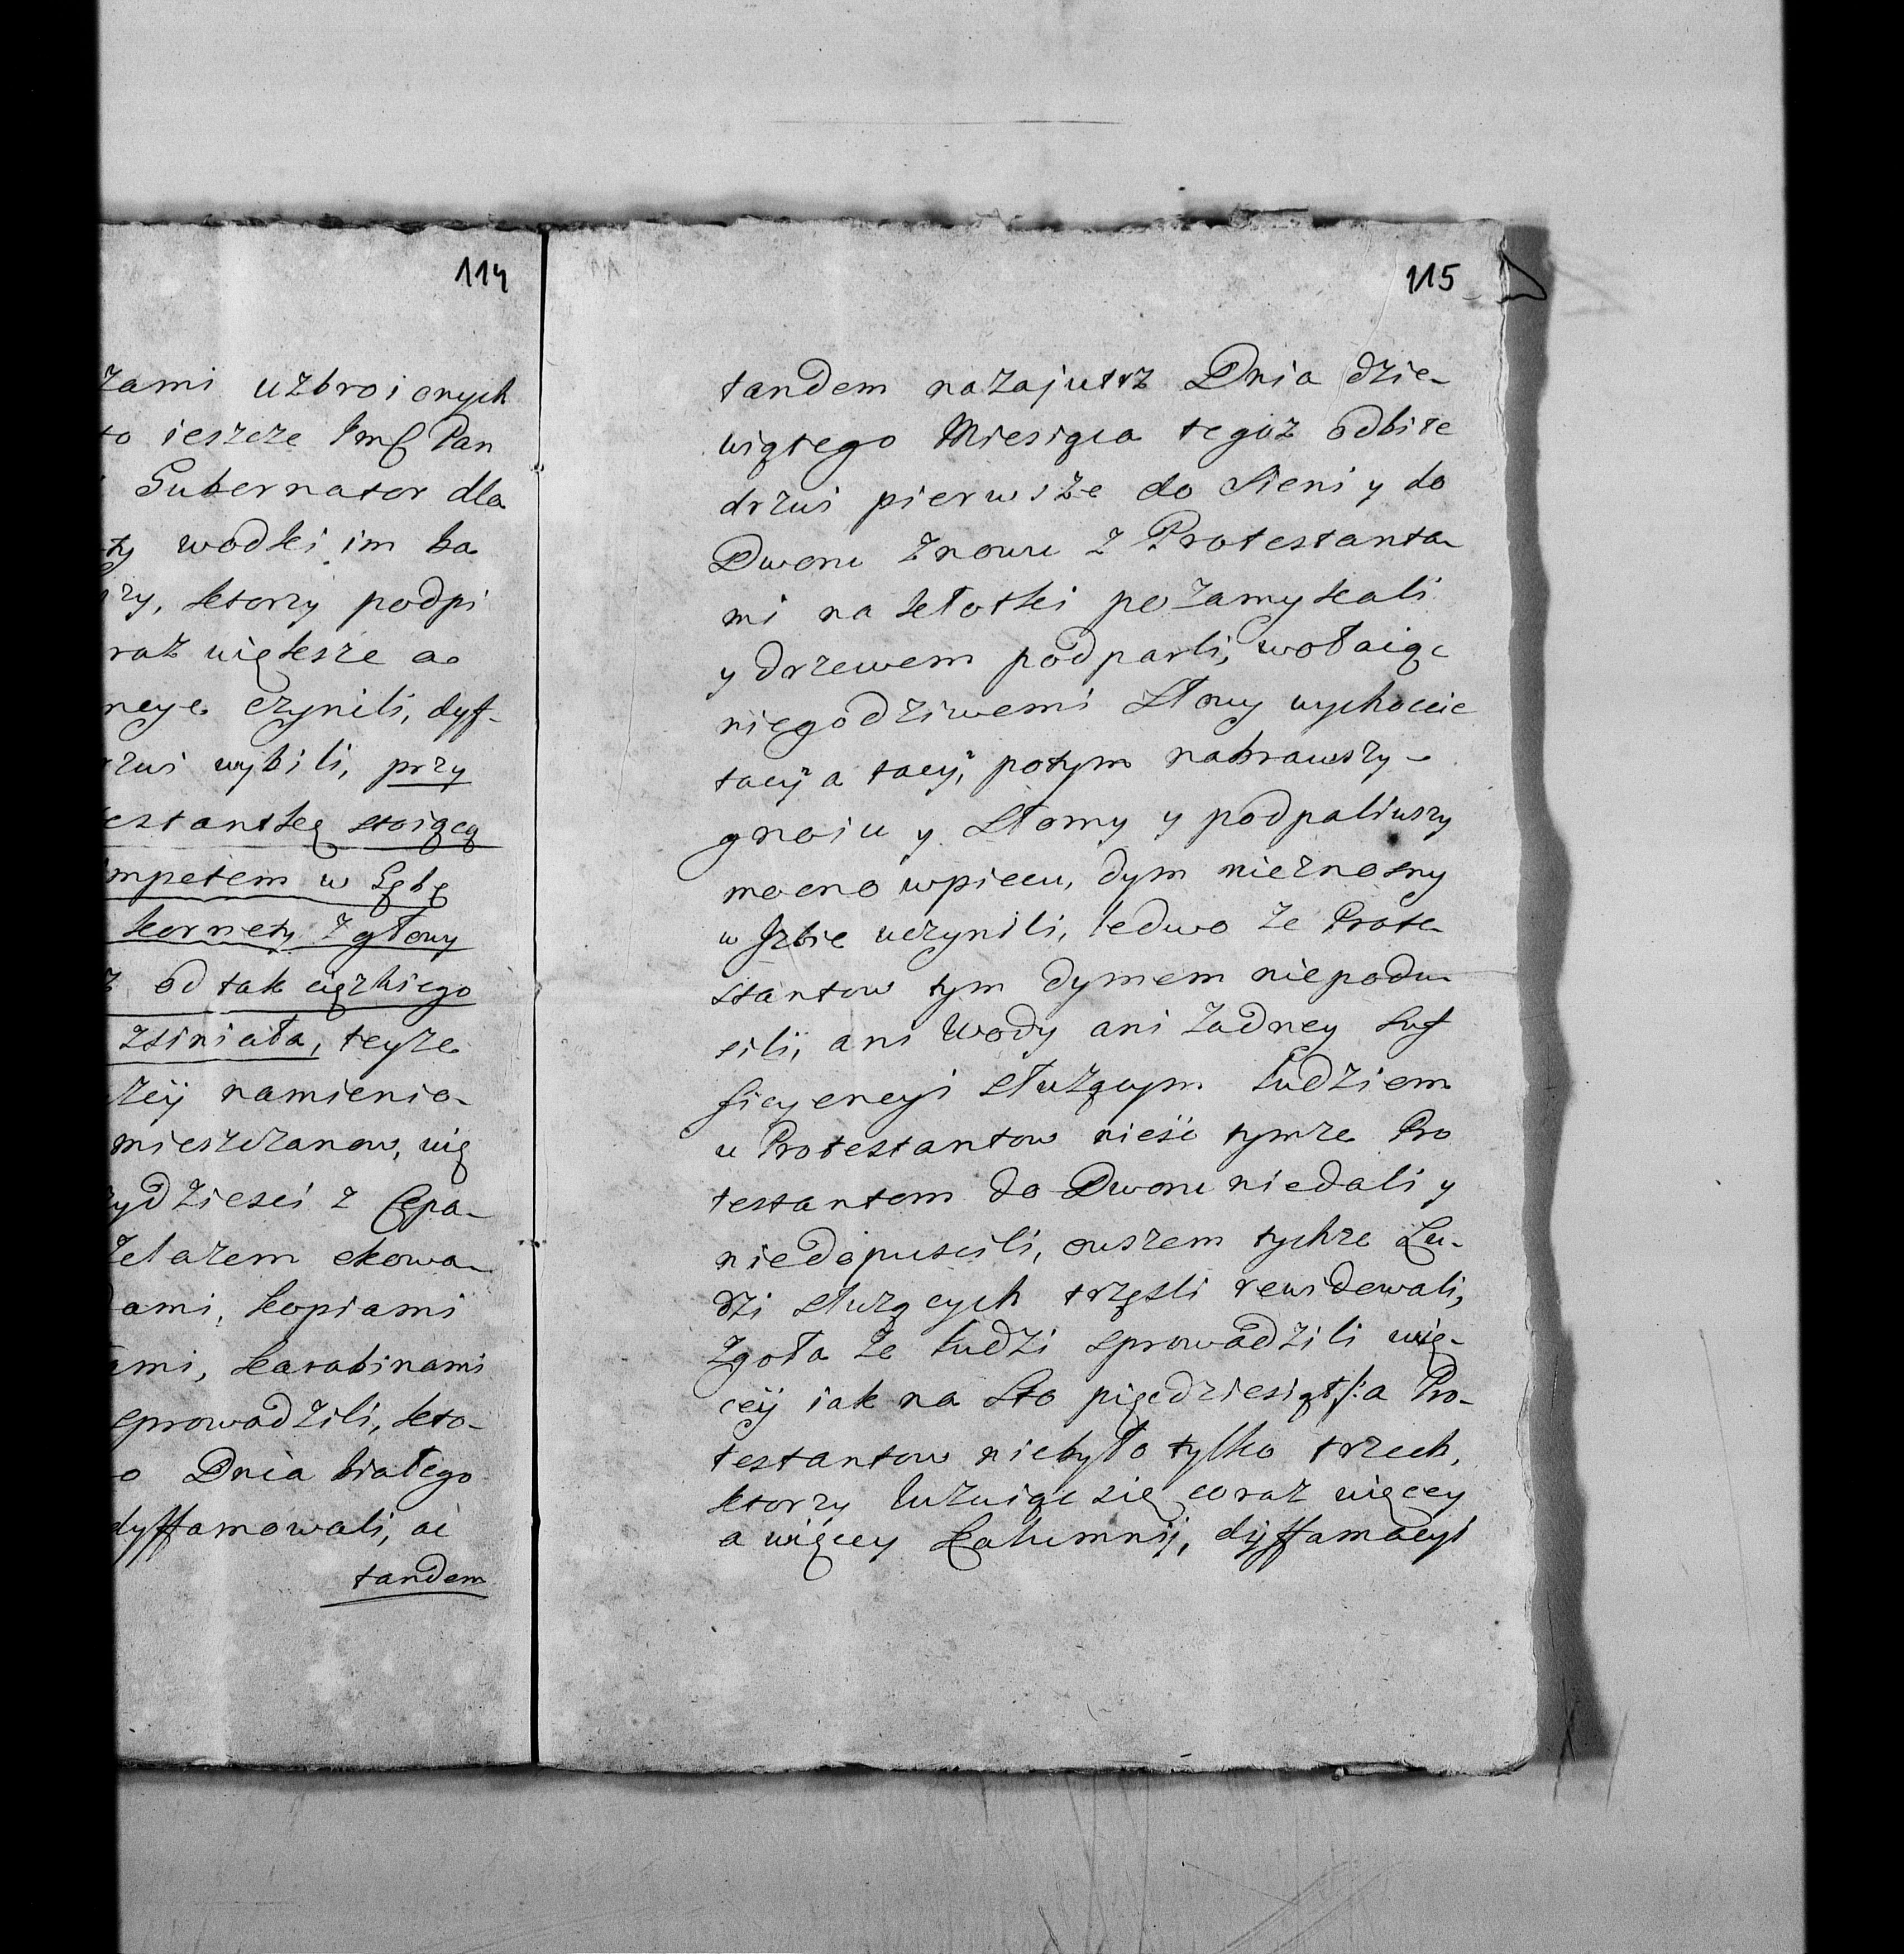 114
żami uzbroionych
to ieszcze Jmć Pan
Gubernator dla
wodki im ka
rzy, ktorzy podpi
raz większe a
neye czynili, dyf-
rzwi wybili, przy
estantkę stoiącą
mpetem w Gębę
kornety z głowy
z od tak cięzkiego
zsiniała, teyże
zeÿ namienio-
mieszczanow, wię
ydziesci z Cepa-
żelazem okowa-
ami, kopiami
ami, karabinami
sprowadzili, kto-
o Dnia białego
dyffamowali, aż
tandem
115
tandem nazajutrz Dnia dzie-
wiątego Miesiąca tegoz odbite
drzwi pierwsze do Sieni y do
Dworu znowu z Protestanta-
mi na kłotki pozamykali
y drzewem podparli, wołaiąc
niegodziwemi Słowy wychoćcie
tacÿ a tacÿ, potym nabrawszy
gnoiu y Słomy y podpaliwszy
mocno wpiecu, dym nieznosny
w Jzbie uczynili, ledwo ze Prote-
stantow tym dymem niepodu-
sili, ani Wody ani Żadney Suf
ficyencyi służącym Ludziom
u Protestantow nieść tymże Pro
testantom do Dworu niedali y
niedopuscili, owszem tychże Lu-
dzi służących trzęśli rewidowali,
Zgoła że Ludzi sprowadzili wię-
ceÿ iak na Sto pięcdziesiąt /: a Pro-
testantow niebyło tylko trzech,
ktorzy luzuiąc się coraz więcey
a więcey Kalumnij, dÿffamacyi